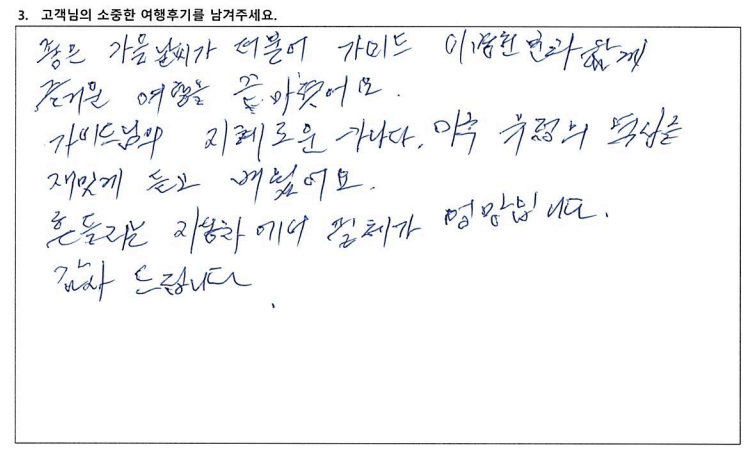 3. 고객님의 소중한 여행후기를 남겨주세요.
좋은 가을날씨가 더불어 가이드 함께
즐거운 여행을 끝마쳤어요.
가이드님의 지혜로운 캐나다, 미국, 유럽의 역사를
재밌게 듣고 배웠어요.
흔들리는 자동차에서 필체가 엉망입니다.
감사 드립니다